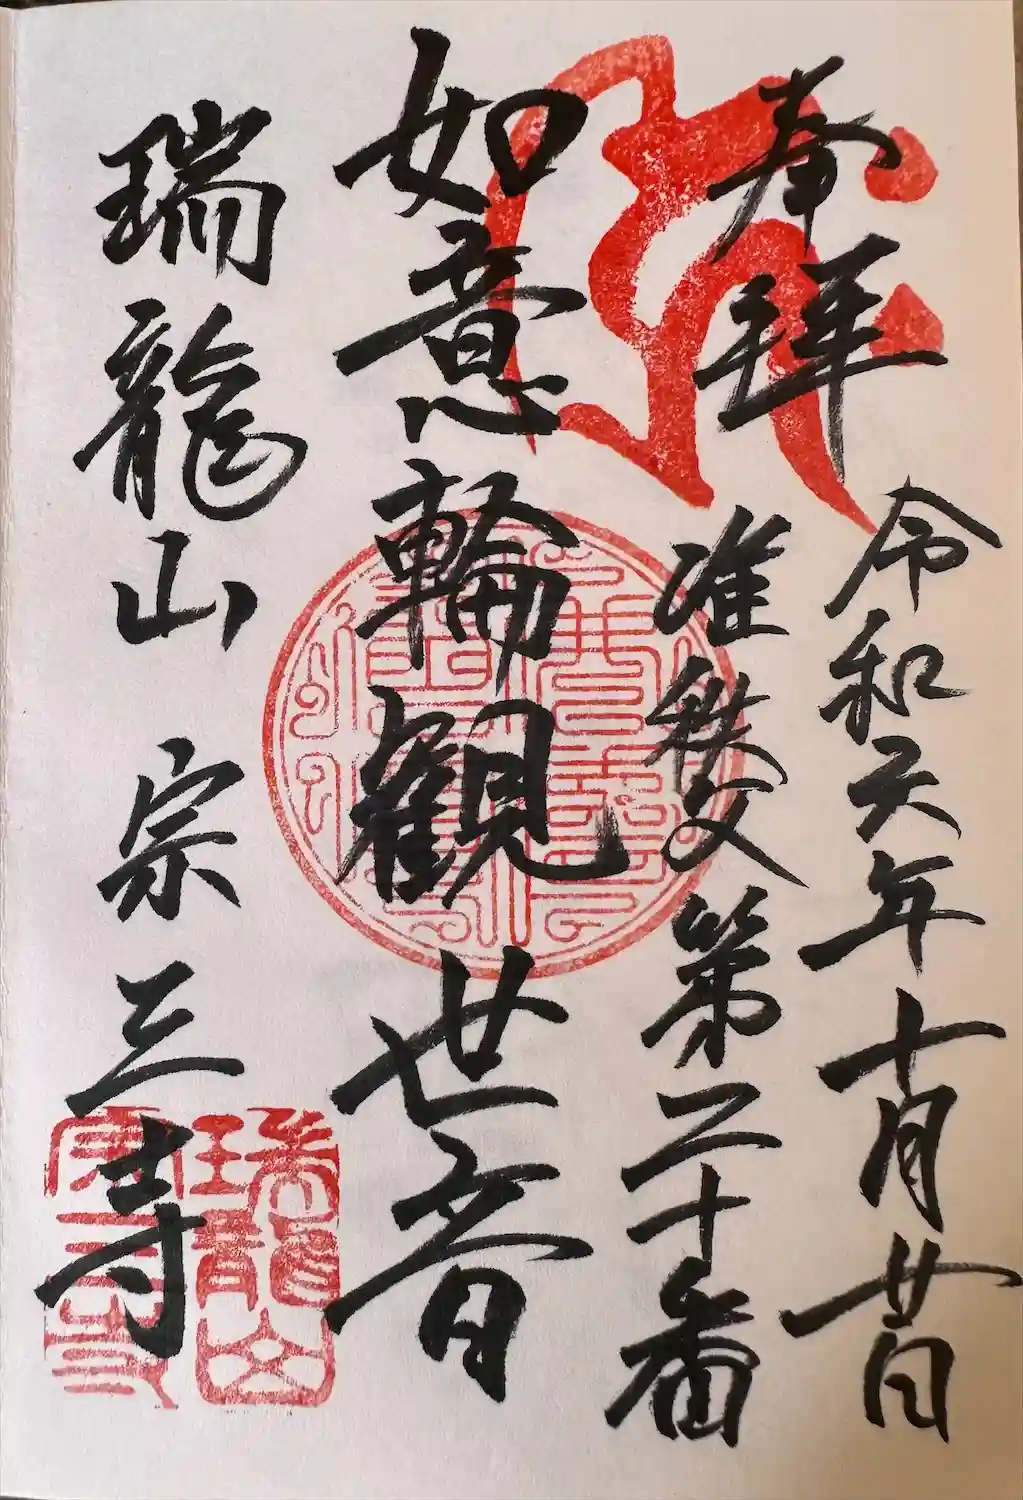 奉拝
令和六年十月廿日
准秩父第二十番
如意輪観世音
瑞龍山 宗三寺
瑞龍山
宗三寺